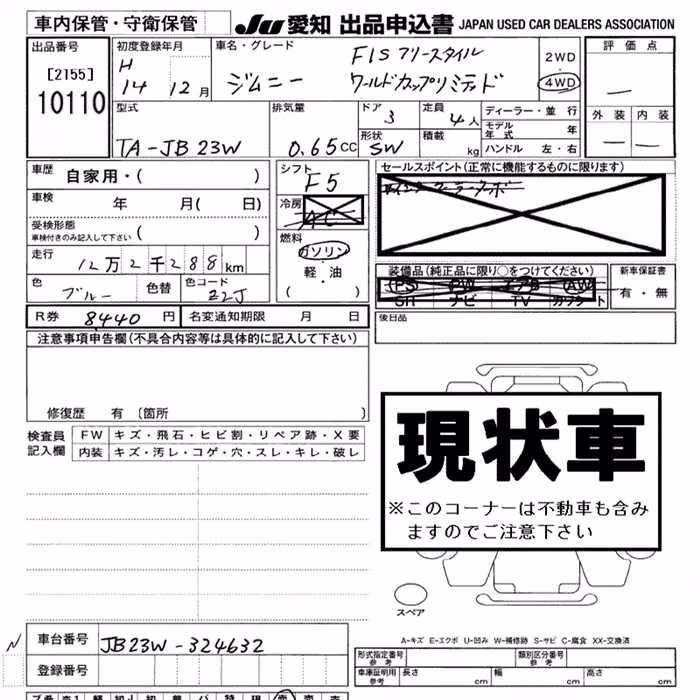 車内保管・守衛保管
JU 愛知 出品申込書 JAPAN USED CAR DEALERS ASSOCIATION
出品番号
[2155]
10110
初度登録年月
H
14 12月
車名・グレード
ジムニー
FISフリースタイル
ワールドカップリミテッド
2WD
4WD
評価点
—
外装 内装
— —
型式
TA-JB23W
排気量
0.65CC
ドア
3
定員
4人
形状
SW
積載
kg
ディーラー・並行
モデル年式 年
ハンドル 左・右
車歴 自家用・( )
車検 年 月( 日)
受検形態
車検付きのみ記入して下さい ( )
走行
12万2千288km
色
ブルー
色替
色コード
ZZJ
シフト
F5
冷房
AC
燃料
ガソリン
・
軽・油
( )
セールスポイント(正常に機能するものに限ります)
装備品(純正品に限り○をつけてください)
PS PW エアB AW
SR ナビ TV カワシート
新車保証書
有・無
後日品
R券 8440円
名変通知期限 月 日
注意事項申告欄(不具合内容等は具体的に記入して下さい)
修復歴 有 〔箇所 〕
検査員
記入欄
FW キズ・飛石・ヒビ割・リペア跡・X要
内装 キズ・汚レ・コゲ・穴・スレ・キレ・破レ
現状車
※このコーナーは不動車も含み
ますのでご注意下さい
スペア
A-キズ E-エクボ U-凹み W-補修跡 S-サビ C-腐食 XX-交換済
車台番号 JB23W-324632
登録番号
形式指定番号
参考
類別区分番号
参考
車庫証明用
参考
長さ cm 幅 cm 高さ cm